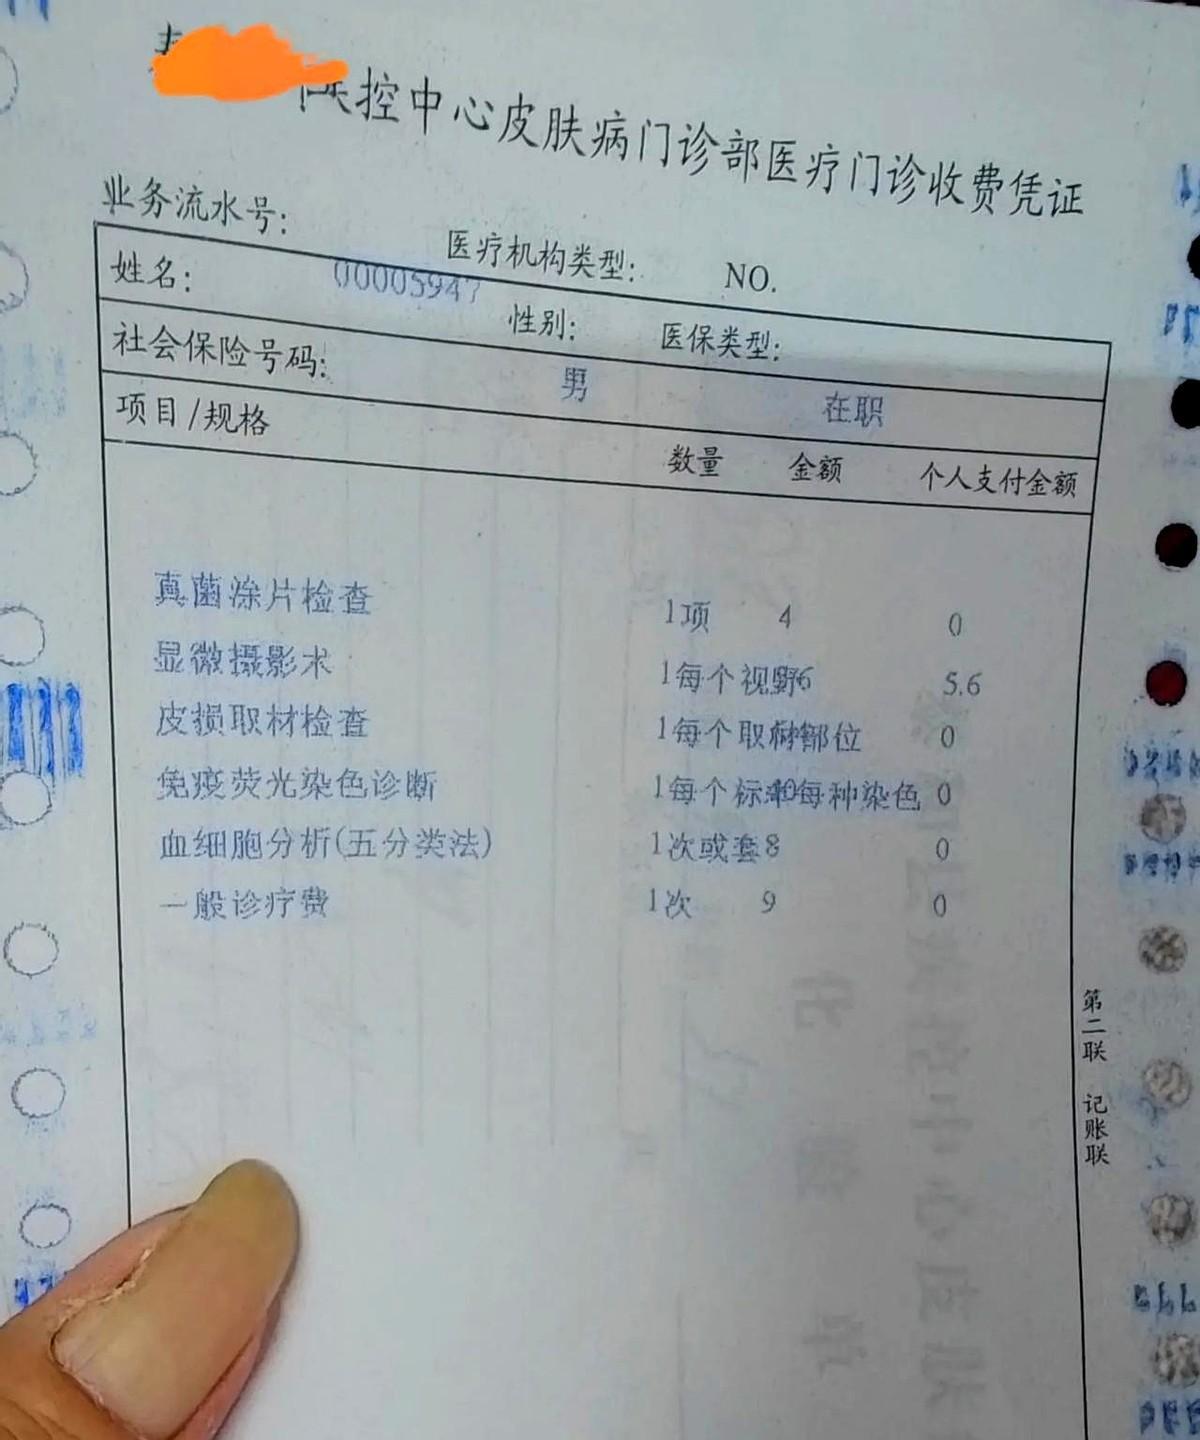 控中心皮肤病门诊部医疗门诊收费凭证
业务流水号: 医疗机构类型: NO.
姓名: 00005947 性别: 医保类型:
社会保险号码: 男 在职
项目/规格 数量 金额 个人支付金额
真菌涂片检查 1项 4 0
显微摄影术 1每个视野 5.6
皮损取材检查 1每个取材部位 0
免疫荧光染色诊断 1每个标本每种染色 0
血细胞分析(五分类法) 1次或套8 0
一般诊疗费 1次 9 0
第二联 记账联